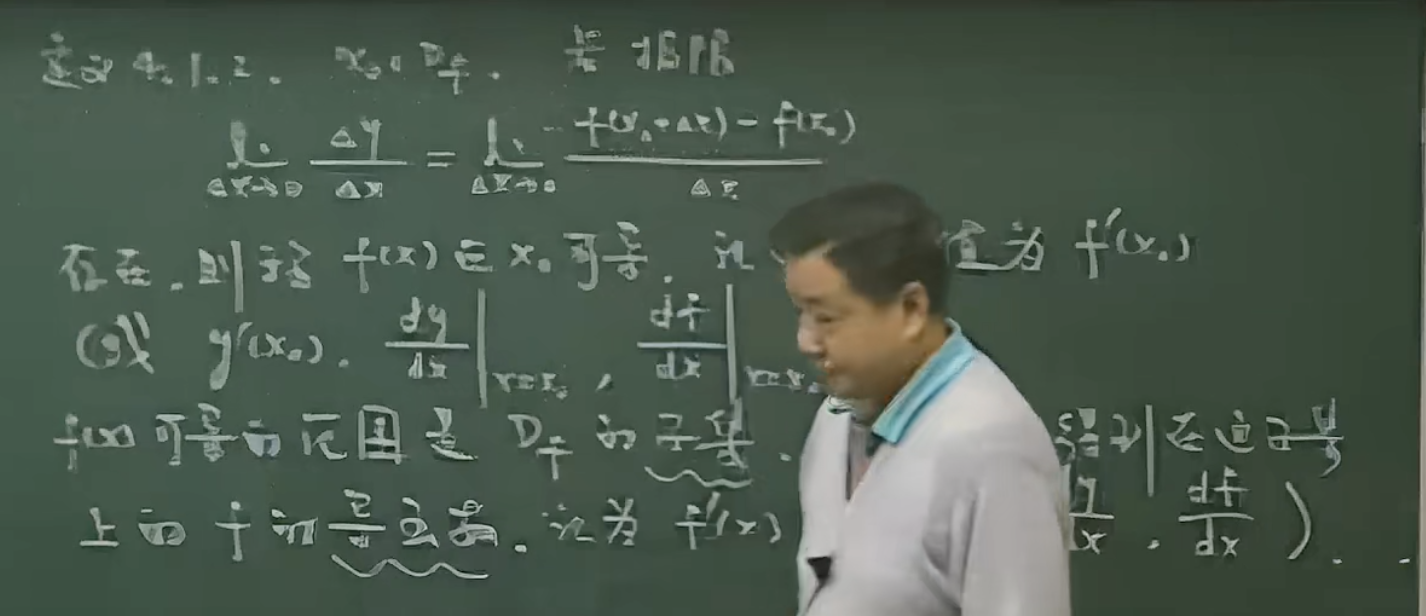 定义4.1.2. x₀∈D_f. 若极限
lim_{Δx→0} Δy/Δx = lim_{Δx→0} (f(x₀+Δx)-f(x₀))/Δx
存在.则称 f(x)在x₀可导.记 值为 f'(x₀)
(或 y'(x₀). dy/dx|_{x=x₀}, df/dx|_{x=x₀}
f(x)可导的范围是 D_f 的子集. 得到在这子集
上的 f 的导函数.记为 f'(x) df/dx).